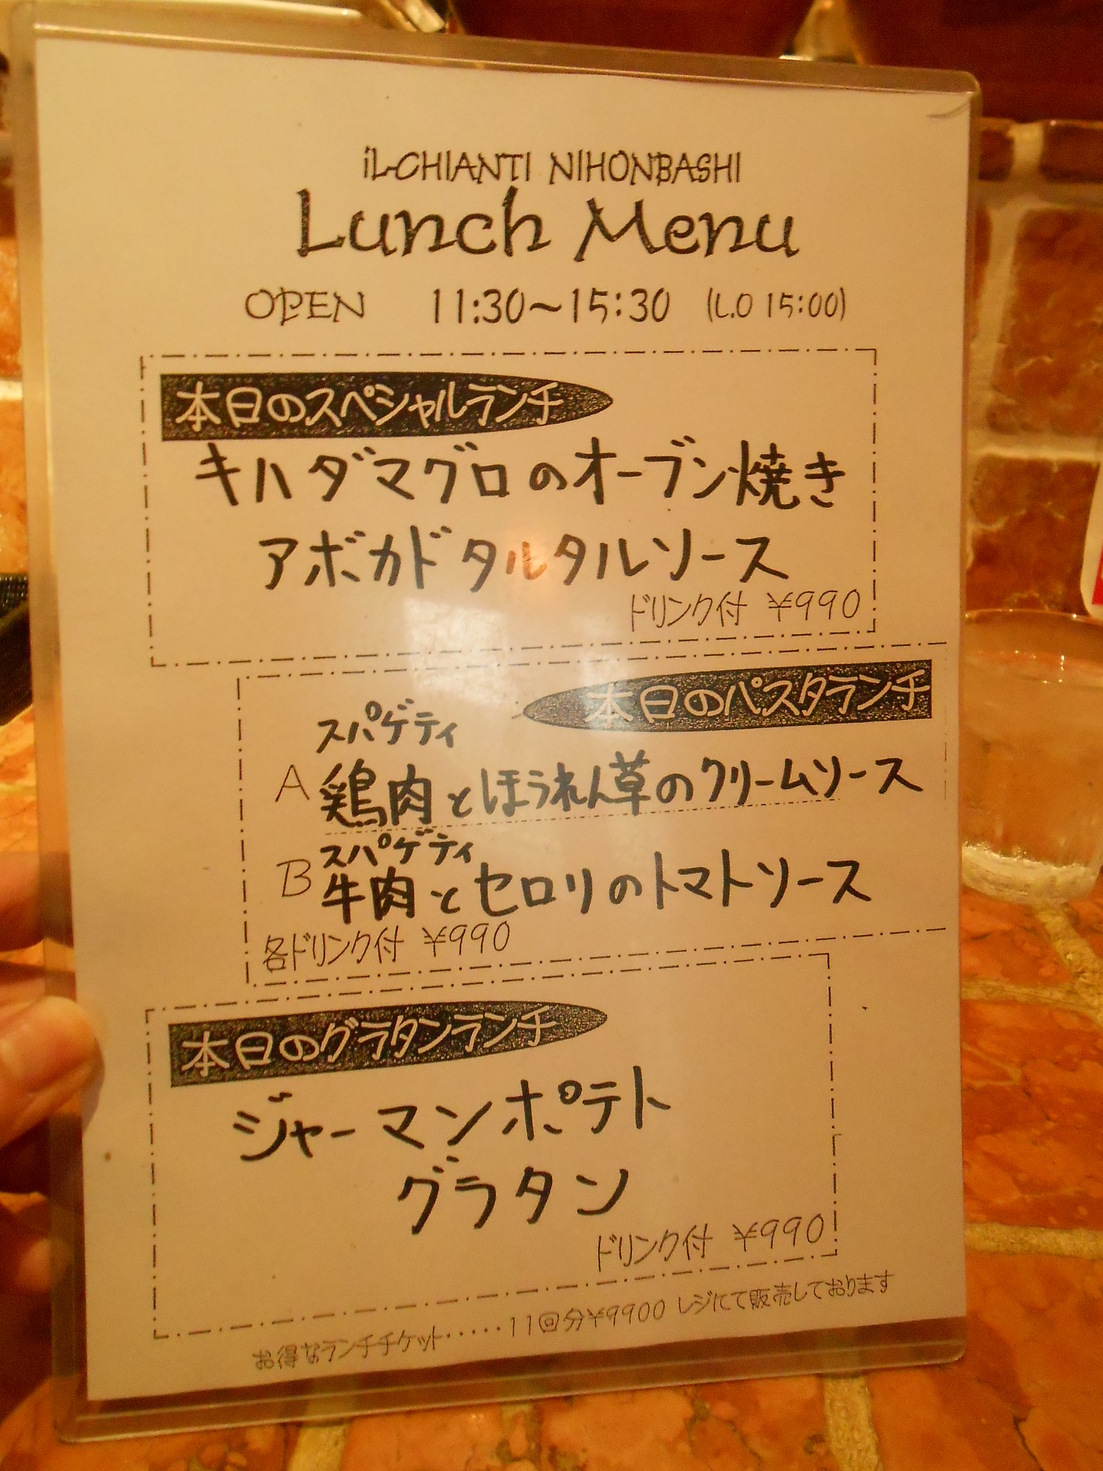 iL-CHIANTI NIHONBASHI
Lunch Menu
OPEN 11:30〜15:30 (L.O 15:00)
本日のスペシャルランチ
キハダマグロのオーブン焼き
アボカドタルタルソース
ドリンク付 ¥990
本日のパスタランチ
スパゲティ
A 鶏肉とほうれん草のクリームソース
スパゲティ
B 牛肉とセロリのトマトソース
各ドリンク付 ¥990
本日のグラタンランチ
ジャーマンポテト
グラタン
ドリンク付 ¥990
お得なランチチケット・・・・・11回分¥9900 レジにて販売しております